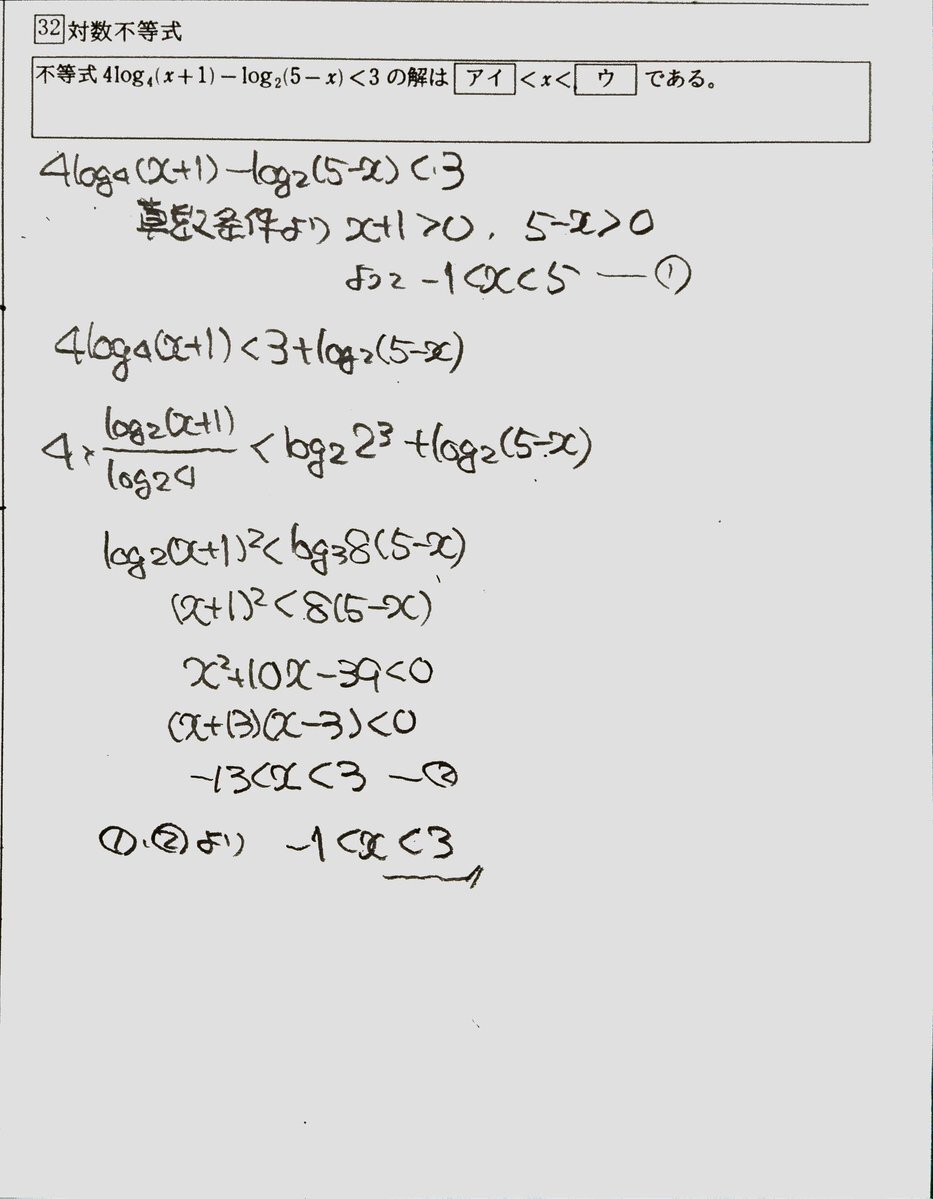 32 対数不等式
不等式 4log₄(x+1)−log₂(5−x)<3 の解は アイ <x< ウ である。
4log₄(x+1)−log₂(5−x)<3
真数条件より x+1>0, 5−x>0
よって −1<x<5 —①
4log₄(x+1)<3+log₂(5−x)
4×log₂(x+1)/log₂4<log₂2³+log₂(5−x)
log₂(x+1)²<log₂8(5−x)
(x+1)²<8(5−x)
x²+10x−39<0
(x+13)(x−3)<0
−13<x<3 —②
①,②より −1<x<3